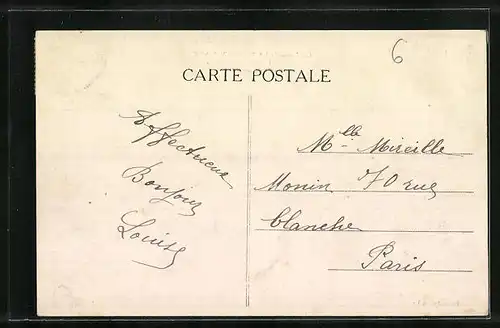 6
CARTE POSTALE
Affectueux
Bonjour
Louise
Mlle Mireille
Monin 70 rue
blanche
Paris